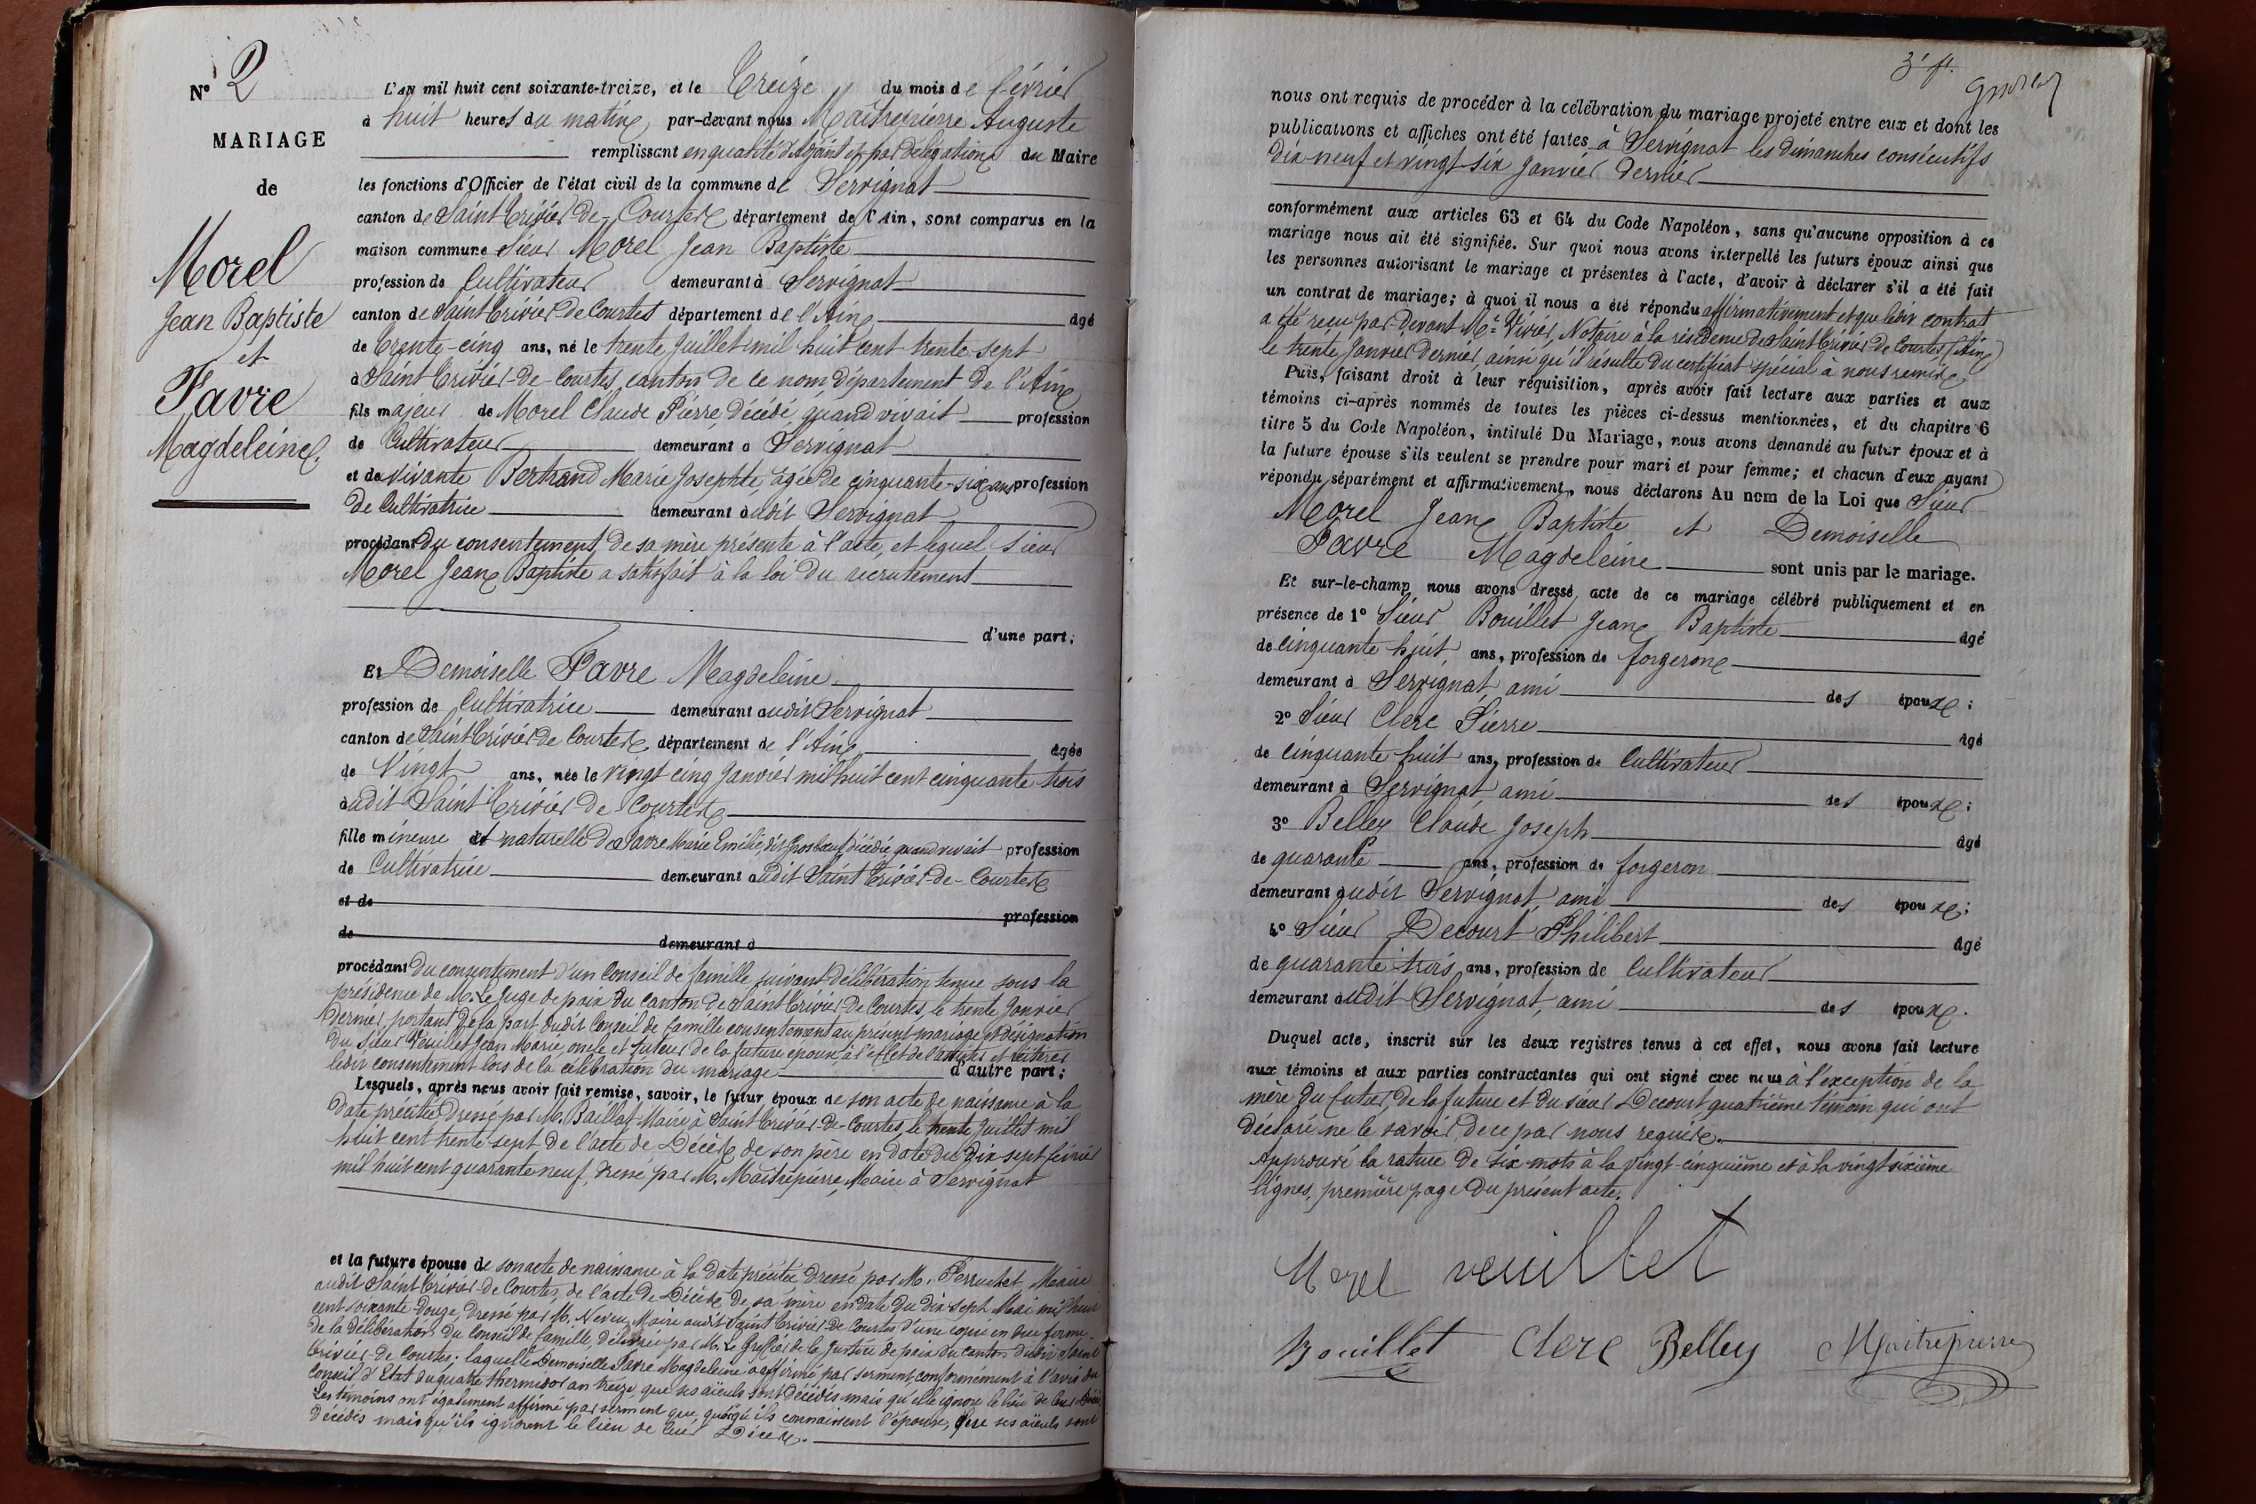 N° 2
MARIAGE
de
Morel
Jean Baptiste
et
Favre
Magdeleine.
L'an mil huit cent soixante-treize, et le Treize du mois de février
à huit heures du matin, par-devant nous Maitrepierre Auguste
remplissant en qualité d'adjoint et par délégation du Maire
les fonctions d'Officier de l'état civil de la commune de Servignat
canton de Saint Trivier de Courtes département de l'Ain, sont comparus en la
maison commune Sieur Morel Jean Baptiste
profession de Cultivateur demeurant à Servignat
canton de Saint Trivier de Courtes département de l'Ain âgé
de Trente-cinq ans, né le trente Juillet mil huit cent trente-sept
à Saint Trivier-de-Courtes, canton de ce nom département de l'Ain
fils majeur de Morel Claude Pierre, décédé, quand vivait profession
de Cultivateur demeurant à Servignat
et de vivante Bertrand Marie Josephte, agée de cinquante-six ans profession
de Cultivatrice demeurant audit Servignat
procédant du consentement de sa mère présente à l'acte, et lequel sieur
Morel Jean Baptiste a satisfait à la loi du recrutement
d'une part;
Et Demoiselle Favre Magdeleine
profession de Cultivatrice demeurant audit Servignat
canton de Saint Trivier de Courtes département de l'Ain âgée
de Vingt ans, née le vingt cinq Janvier mil huit cent cinquante-trois
audit Saint Trivier de Courtes
fille mineure et naturelle de Favre Marie Emilie, dit décédée quand vivait profession
de Cultivatrice demeurant audit Saint Trivier-de-Courtes
et de profession
de demeurant à
procédant du consentement d'un Conseil de famille suivant délibération tenue sous la
présidence de M. Le Juge de paix du Canton de Saint Trivier-de-Courtes, le trente Janvier
dernier, portant de la part dudit Conseil de famille consentement au présent mariage et désignation
du sieur Veuillet Jean Marie, oncle et tuteur de la future épouse, à l'effet de l'assister et réitérer
ledit consentement lors de la célébration du mariage d'autre part;
Lesquels, après nous avoir fait remise, savoir, le futur époux de son acte de naissance à la
date précitée dressé par M. Baillat Maire à Saint Trivier-de-Courtes, le trente Juillet mil
huit cent trente-sept de l'acte de Décès de son père en date du dix sept février
mil huit cent quarante neuf, dressé par M. Maitrepierre, Maire à Servignat
et la future épouse de son acte de naissance à la date précitée dressé par M. Perruchet Maire
audit Saint Trivier-de-Courtes, de l'acte de Décès de sa mère en date du dix sept Mai mil huit
cent soixante douze, dressé par M. Neveu, Maire audit Saint Trivier-de-Courtes d'une copie en due forme
de la délibération du Conseil de famille, délivrée par M. Le Greffier de la Justice de paix du canton dudit Saint
Trivier-de-Courtes; laquelle Demoiselle Favre Magdeleine a affirmé par serment, conformément à l'avis du
Conseil d'Etat du quatre thermidor an treize que ses aïeuls sont décédés mais qu'elle ignore le lieu de leur Décès
Les témoins ont également affirmé par serment que, quoiqu'ils connaissent l'épouse, que ses aïeuls sont
décédés mais qu'ils ignorent le lieu de leur Décès.
3e f.
nous ont requis de procéder à la célébration du mariage projeté entre eux et dont les
publications et affiches ont été faites à Servignat les dimanches consécutifs
dix-neuf et vingt-six Janvier dernier
conformément aux articles 63 et 64 du Code Napoléon, sans qu'aucune opposition à ce
mariage nous ait été signifiée. Sur quoi nous avons interpellé les futurs époux ainsi que
les personnes autorisant le mariage et présentes à l'acte, d'avoir à déclarer s'il a été fait
un contrat de mariage; à quoi il nous a été répondu affirmativement et que ledit contrat
a été reçu par-devant Me Vivier, Notaire à la résidence de Saint Trivier de Courtes, (Ain)
le trente Janvier dernier, ainsi qu'il résulte du certificat spécial à nous remis
Puis, faisant droit à leur réquisition, après avoir fait lecture aux parties et aux
témoins ci-après nommés de toutes les pièces ci-dessus mentionnées, et du chapitre 6
titre 5 du Code Napoléon, intitulé Du Mariage, nous avons demandé au futur époux et à
la future épouse s'ils veulent se prendre pour mari et pour femme; et chacun d'eux ayant
répondu séparément et affirmativement, nous déclarons Au nom de la Loi que Sieur
Morel Jean Baptiste et Demoiselle
Favre Magdeleine sont unis par le mariage.
Et sur-le-champ nous avons dressé acte de ce mariage célébré publiquement et en
présence de 1° Sieur Bouillet Jean Baptiste âgé
de cinquante huit ans, profession de forgeron
demeurant à Servignat ami des époux;
2° Sieur Clerc Pierre âgé
de cinquante huit ans, profession de Cultivateur
demeurant à Servignat ami des époux;
3° Belley Claude Joseph âgé
de quarante ans, profession de forgeron
demeurant audit Servignat, ami des époux;
4° Sieur Decourt Philibert âgé
de quarante-trois ans, profession de Cultivateur
demeurant audit Servignat, ami des époux.
Duquel acte, inscrit sur les deux registres tenus à cet effet, nous avons fait lecture
aux témoins et aux parties contractantes qui ont signé avec nous à l'exception de la
mère du futur, de la future et du sieur Decourt quatrième témoin qui ont
déclaré ne le savoir, de ce par nous requis.
Approuvé la rature de six mots à la vingt-cinquième et à la vingt sixième
lignes, première page du présent acte.
Morel veuillet
Bouillet Clerc Belley Maitrepierre